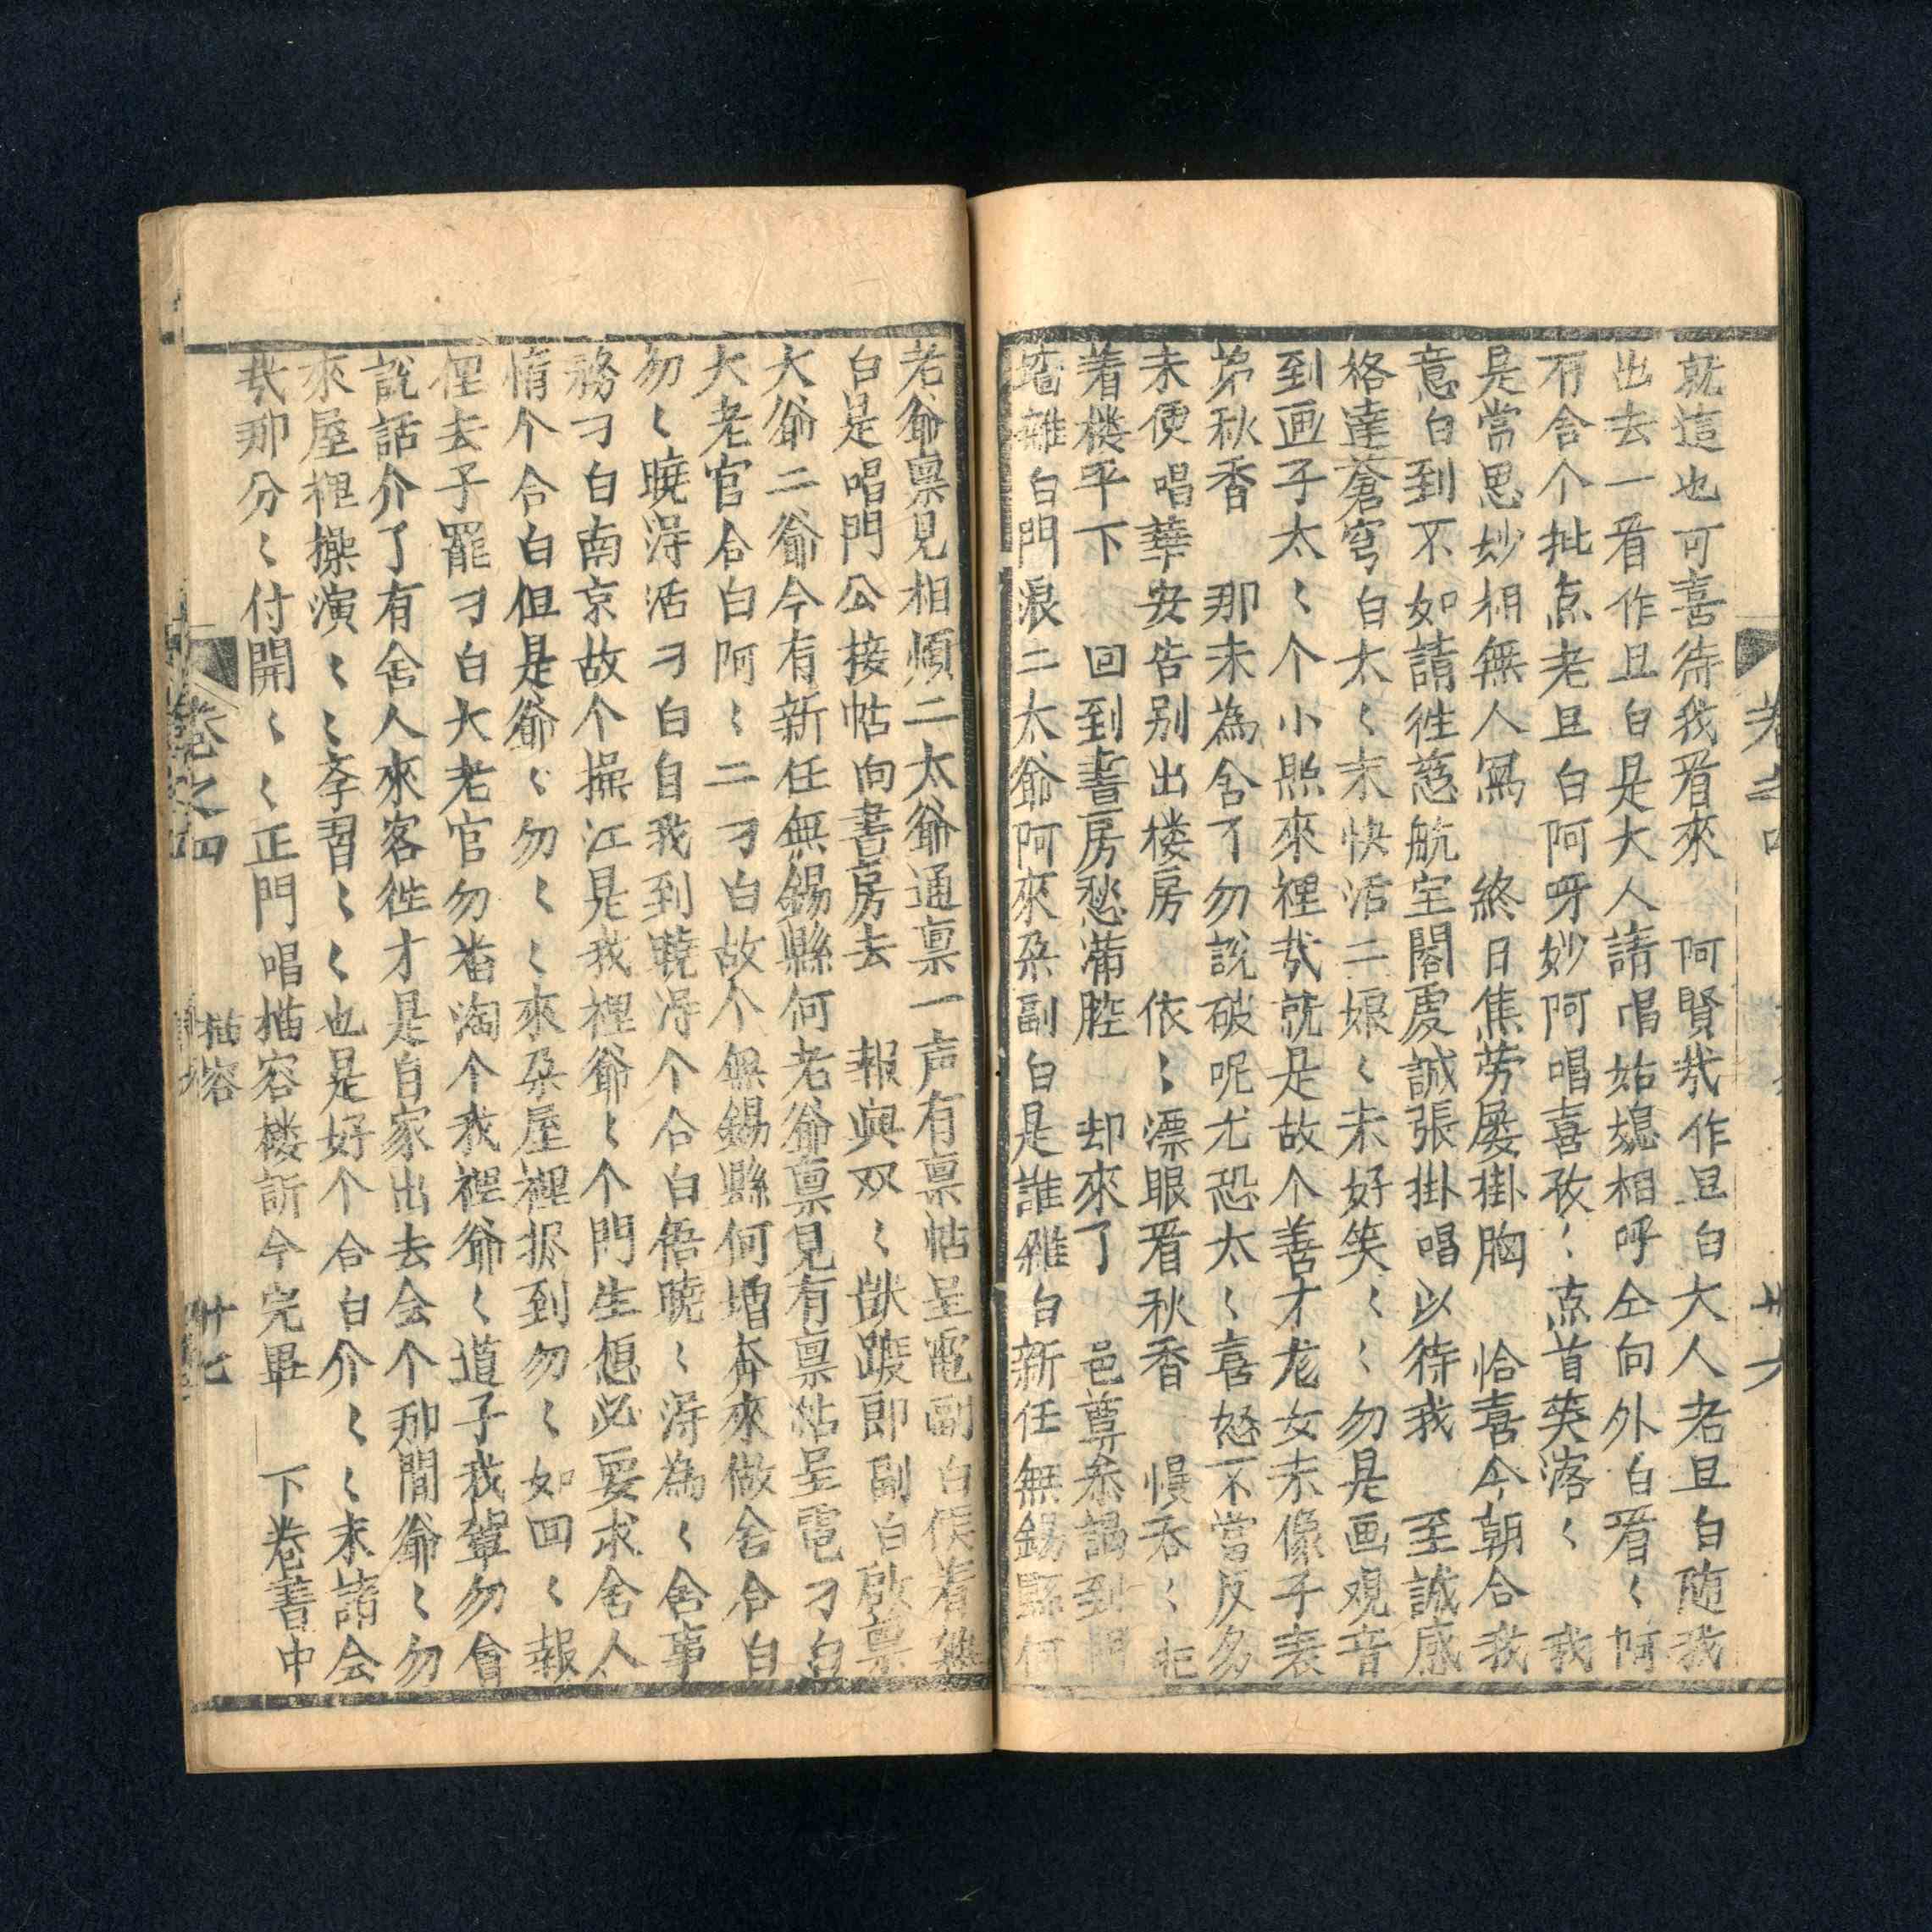 就這也可喜待我看來 阿賢哉作旦白大人老旦白随我
出去一看作旦白是大人請唱姑媳相呼仝向外白看〻啊
有舍个批点老旦白阿呀妙阿唱喜孜〻点首笑落〻 我
是當思妙相無人冩 終日焦勞屡掛胸 恰喜今朝合我
意白到不如請徃慈航宝閣處誠張掛唱以待我 至誠感
格達蒼穹白太〻末快活二娘〻未好笑〻〻勿是画观音
到画子太〻个小照來裡哉就是故个善才龙女未像子表
弟秋香 那未為舍了勿說破呢尤恐太〻喜怒不當反多
未便唱華安告别出楼房 依〻漂眼看秋香 恨吞〻
着楼平下 回到書房愁滿腔 却來了 邑尊叅謁到門
墻雜白門浪二太爺阿來朶副白是誰雜白新任無錫縣何
卷之四
廿六
老爺禀見相煩二太爺通禀一声有禀帖呈電副白候着
白是唱門公接帖向書房去 報與双〻 即副白啟禀
大爺二爺今有新任無錫縣何老爺禀見有禀帖呈電刁白
大老官合白阿〻二刁白故个無錫縣何壻奔來做舍合白
勿〻曉淂活刁白自我到曉淂个合白俉曉〻淂為〻舍事
務刁白南京故个操江是我裡爺〻个門生想必要求舍人
情个合白但是爺〻勿〻〻來朶屋裡 到勿〻如回〻報
俚去子罷刁白大老官勿 淘个我裡爺〻道子我輩勿會
說話介了有舍人來客徃才是自家出去会个 間爺〻勿
來屋裡操演〻〻斈習〻〻也是好个合白介〻〻末請会
哉那分〻付開〻〻正門唱描容楼 今完畢 下卷書中
卷之四
描容
廿七